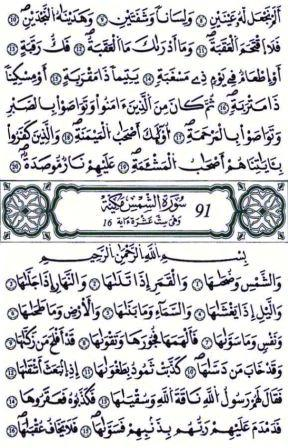 أَلَمْ نَجْعَل لَّهُۥ عَيْنَيْنِ ٨ وَلِسَانًا وَشَفَتَيْنِ ٩ وَهَدَيْنَٰهُ ٱلنَّجْدَيْنِ ١٠
فَلَا ٱقْتَحَمَ ٱلْعَقَبَةَ ١١ وَمَآ أَدْرَىٰكَ مَا ٱلْعَقَبَةُ ١٢ فَكُّ رَقَبَةٍ ١٣
أَوْ إِطْعَٰمٌ فِى يَوْمٍ ذِى مَسْغَبَةٍ ١٤ يَتِيمًا ذَا مَقْرَبَةٍ ١٥ أَوْ مِسْكِينًا
ذَا مَتْرَبَةٍ ١٦ ثُمَّ كَانَ مِنَ ٱلَّذِينَ ءَامَنُوا۟ وَتَوَاصَوْا۟ بِٱلصَّبْرِ
وَتَوَاصَوْا۟ بِٱلْمَرْحَمَةِ ١٧ أُو۟لَٰٓئِكَ أَصْحَٰبُ ٱلْمَيْمَنَةِ ١٨ وَٱلَّذِينَ كَفَرُوا۟
بِـَٔايَٰتِنَا هُمْ أَصْحَٰبُ ٱلْمَشْـَٔمَةِ ١٩ عَلَيْهِمْ نَارٌ مُّوصَدَةٌۢ ٢٠
سُورَةُ الشَّمْسِ مَكِّيَّة 91
وَهْىَ سِتَّ عَشْرَةَ ءَايَة 16
بِسْمِ ٱللَّهِ ٱلرَّحْمَٰنِ ٱلرَّحِيمِ
وَٱلشَّمْسِ وَضُحَىٰهَا ١ وَٱلْقَمَرِ إِذَا تَلَىٰهَا ٢ وَٱلنَّهَارِ إِذَا جَلَّىٰهَا ٣
وَٱلَّيْلِ إِذَا يَغْشَىٰهَا ٤ وَٱلسَّمَآءِ وَمَا بَنَىٰهَا ٥ وَٱلْأَرْضِ وَمَا طَحَىٰهَا ٦
وَنَفْسٍ وَمَا سَوَّىٰهَا ٧ فَأَلْهَمَهَا فُجُورَهَا وَتَقْوَىٰهَا ٨ قَدْ أَفْلَحَ مَن زَكَّىٰهَا ٩
وَقَدْ خَابَ مَن دَسَّىٰهَا ١٠ كَذَّبَتْ ثَمُودُ بِطَغْوَىٰهَآ ١١ إِذِ ٱنۢبَعَثَ أَشْقَىٰهَا ١٢
فَقَالَ لَهُمْ رَسُولُ ٱللَّهِ نَاقَةَ ٱللَّهِ وَسُقْيَٰهَا ١٣ فَكَذَّبُوهُ فَعَقَرُوهَا ١٤
فَدَمْدَمَ عَلَيْهِمْ رَبُّهُم بِذَنۢبِهِمْ فَسَوَّىٰهَا ١٥ فَلَا يَخَافُ عُقْبَٰهَا ١٦